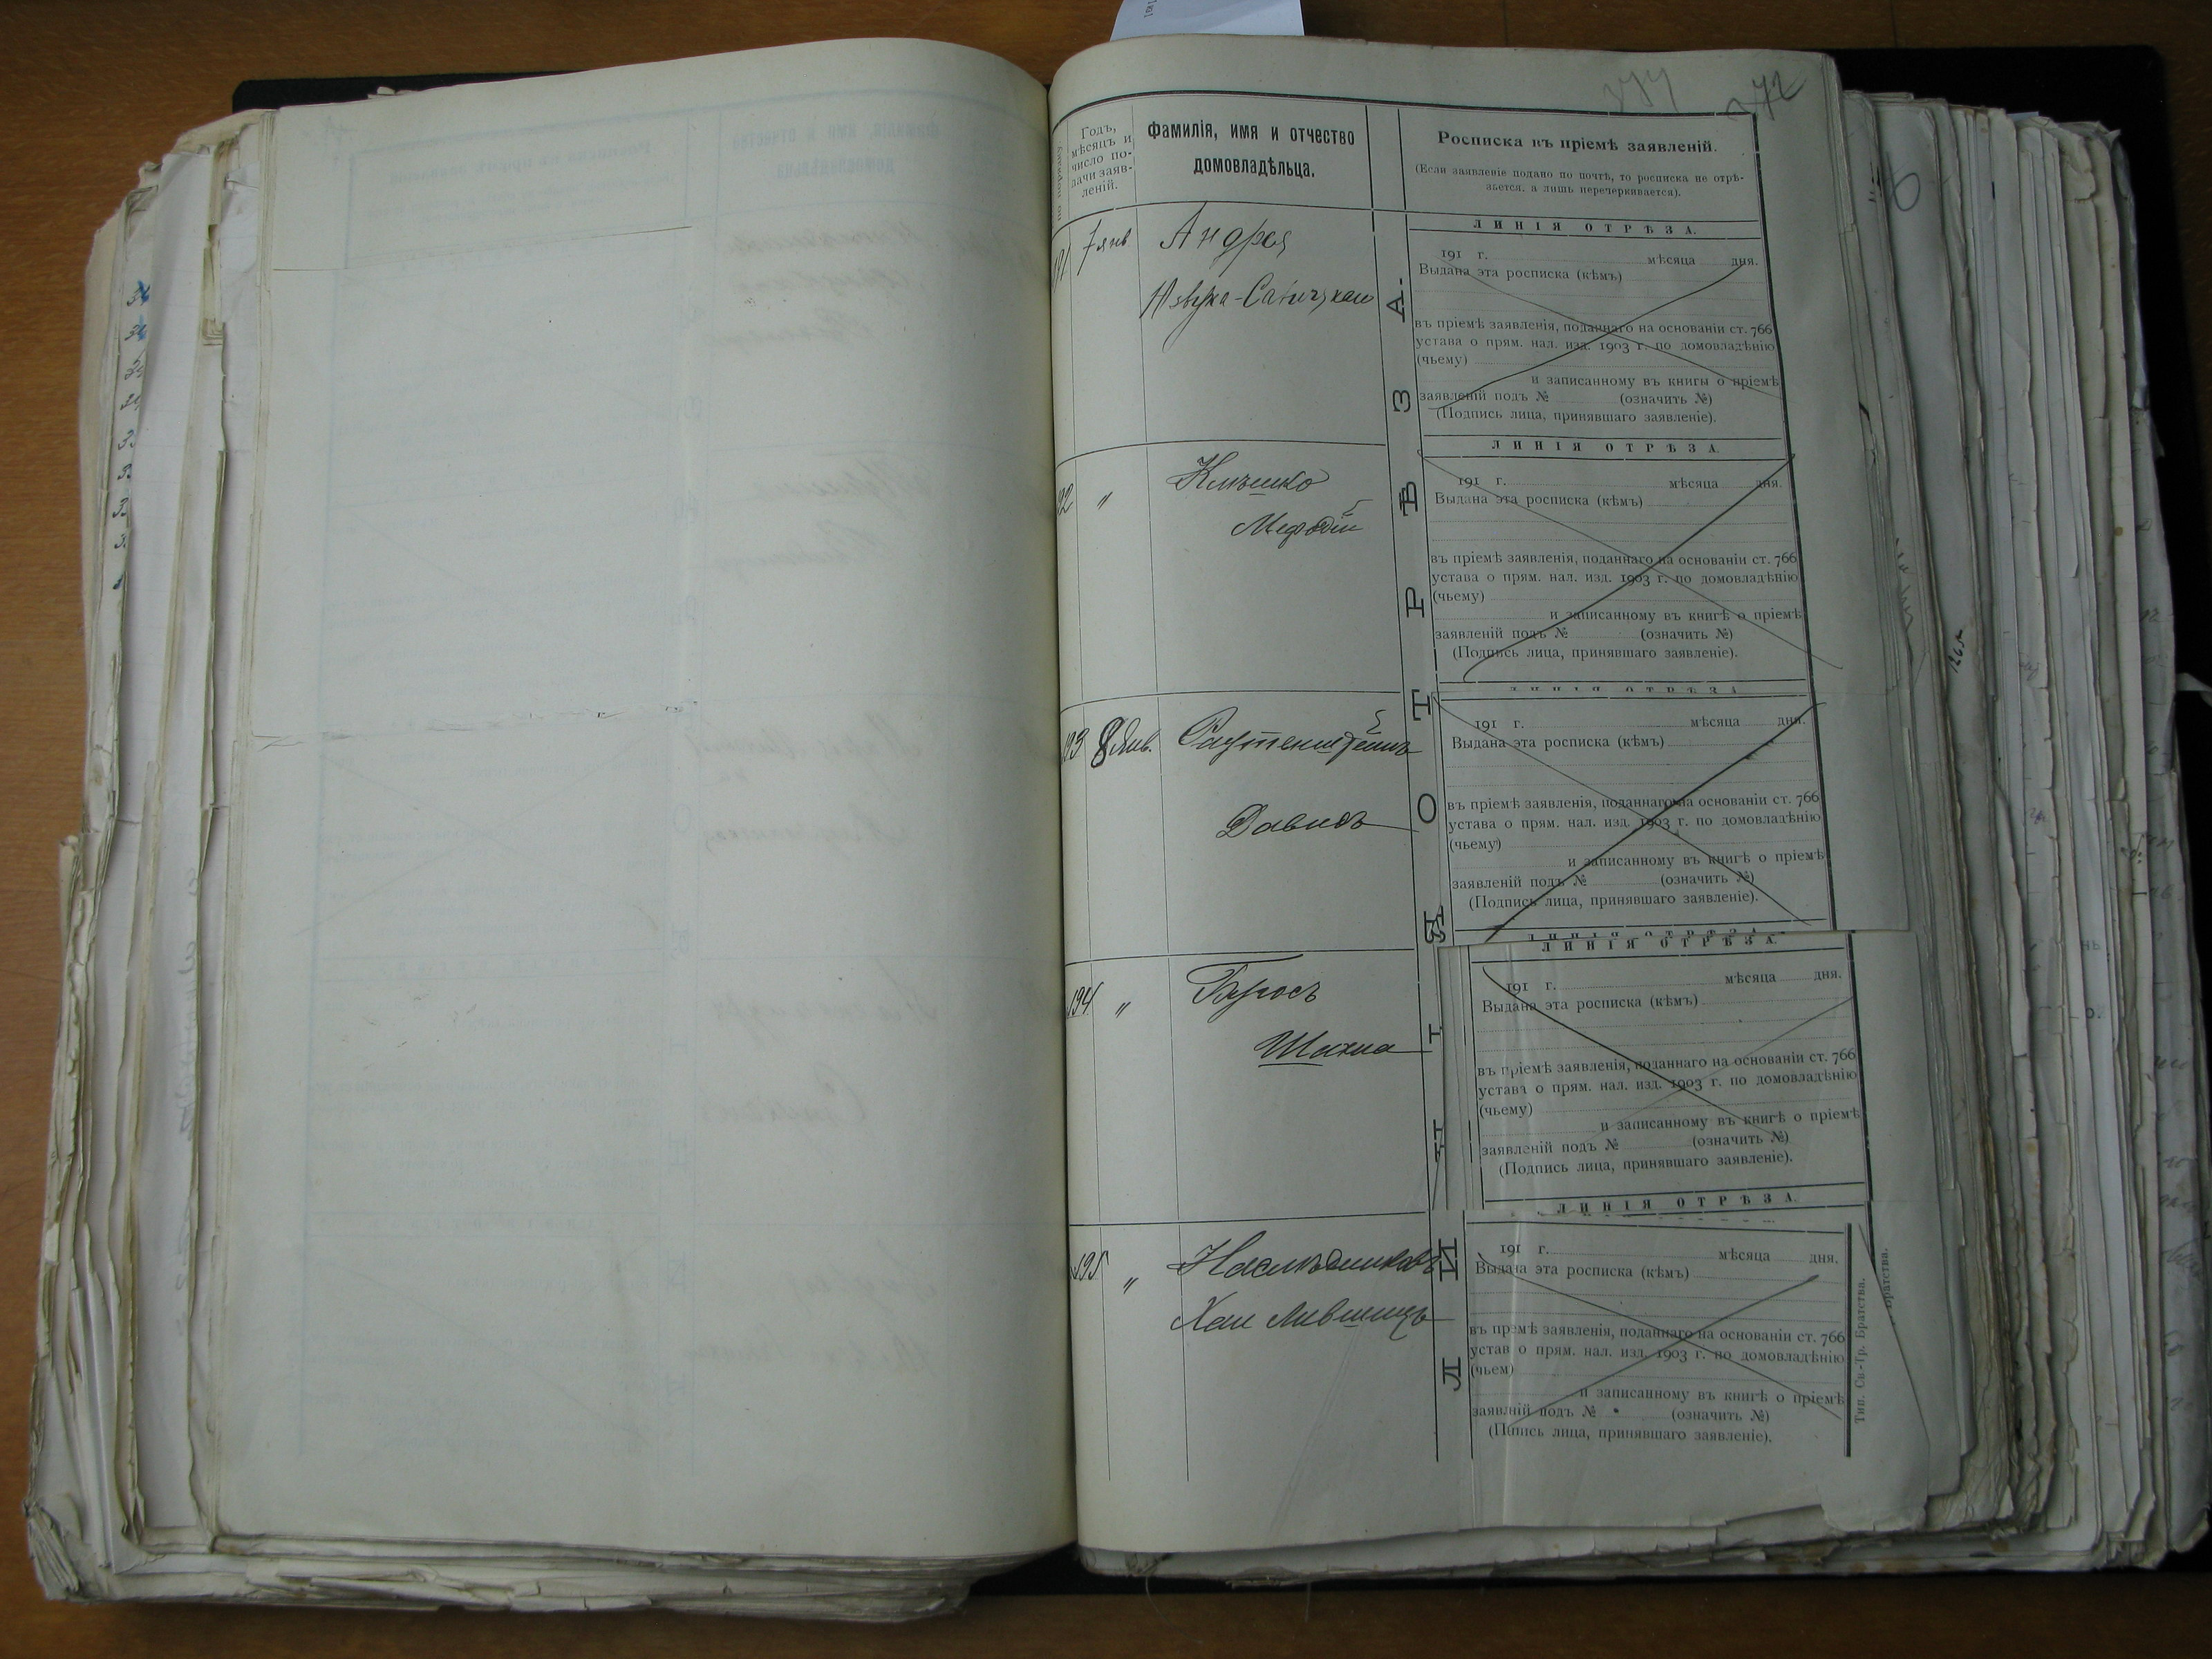 372
по порядку
Годъ,
мѣсяцъ и
число по-
дачи заяв-
леній.
Фамилія, имя и отчество
домовладѣльца.
Росписка въ пріемѣ заявленій.
(Если заявленіе подано по почтѣ, то росписка не отрѣ-
зается, а лишь перечеркивается).
ЛИНІЯ ОТРѢЗА.
191
7 янв
Андрея
191 г. мѣсяца дня.
Выдана эта росписка (кѣмъ)
въ пріемѣ заявленія, поданнаго на основаніи ст. 766
устава о прям. нал. изд. 1903 г. по домовладѣнію
(чьему)
и записанному въ книгы о пріемѣ
заявленій подъ № (означить №)
(Подпись лица, принявшаго заявленіе).
ЛИНІЯ ОТРѢЗА.
192
"
Клѣшко
Мефодій
191 г. мѣсяца дня.
Выдана эта росписка (кѣмъ)
въ пріемѣ заявленія, поданнаго на основаніи ст. 766
устава о прям. нал. изд. 1903 г. по домовладѣнію
(чьему)
и записанному въ книгѣ о пріемѣ
заявленій подъ № (означить №)
(Подпись лица, принявшаго заявленіе).
ЛИНІЯ ОТРѢЗА
193
8 Янв.
Раутенштейнъ
Давидъ
191 г. мѣсяца дня.
Выдана эта росписка (кѣмъ)
въ пріемѣ заявленія, поданнаго на основаніи ст. 766
устава о прям. нал. изд. 1903 г. по домовладѣнію
(чьему)
и записанному въ книгѣ о пріемѣ
заявленій подъ № (означить №)
(Подпись лица, принявшаго заявленіе).
ЛИНІЯ ОТРѢЗА.
ЛИНІЯ ОТРѢЗА.
194
"
Шахна
191 г. мѣсяца дня.
Выдана эта росписка (кѣмъ)
въ пріемѣ заявленія, поданнаго на основаніи ст. 766
устава о прям. нал. изд. 1903 г. по домовладѣнію
(чьему)
и записанному въ книгѣ о пріемѣ
заявленій подъ № (означить №)
(Подпись лица, принявшаго заявленіе).
ЛИНІЯ ОТРѢЗА.
195
"
Наслѣдниковъ
Хаи Лившицъ
191 г. мѣсяца дня.
Выдана эта росписка (кѣмъ)
въ премѣ заявленія, поданнаго на основаніи ст. 766
устав о прям. нал. изд. 1903 г. по домовладѣнію
(чьем)
и записанному въ книгѣ о пріемѣ
заявлній подъ № (означить №)
(Ппись лица, принявшаго заявленіе).
ЛИНІЯ ОТРѢЗА.
Тип. Св.-Тр. Братства.
Братства.
1265